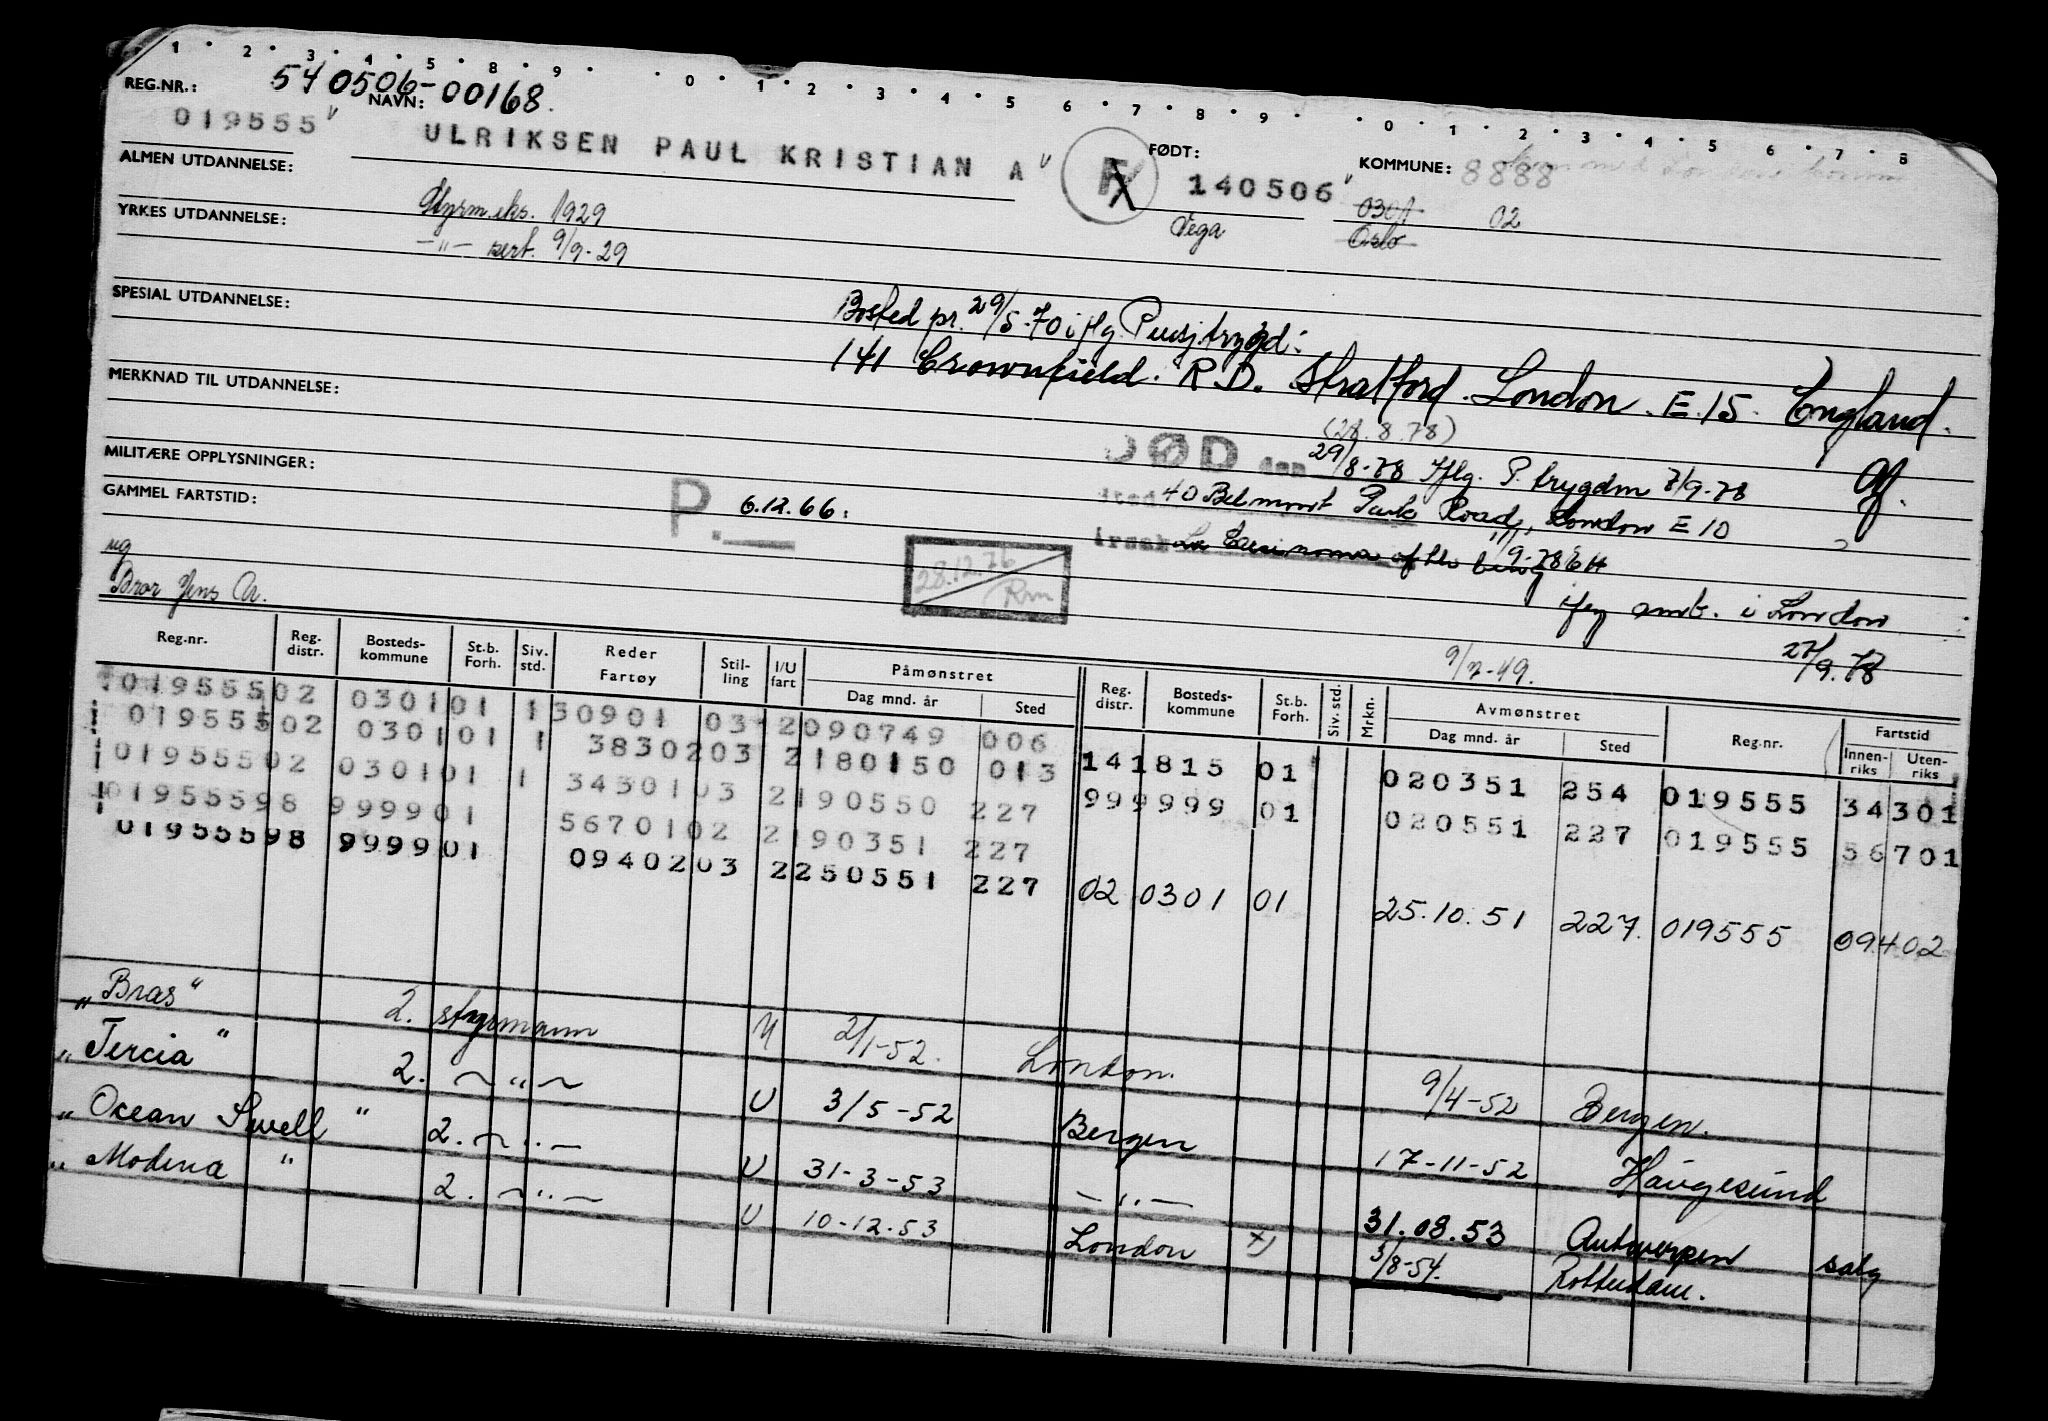 1 · 2 · 3 · 4 · 5 · 8 · 9 · 0 · 1 · 2 · 3 · 4 · 5 · 6 · 7 · 8 · 9 · 0 · 1 · 2 · 3 · 4 · 5 · 6 · 7 · 8
REG.NR.: 540506-00168.
NAVN:
019555 ULRIKSEN PAUL KRISTIAN A
FØDT: 140506
Vega
KOMMUNE: 8888
0301 02
Oslo
ALMEN UTDANNELSE:
YRKES UTDANNELSE: Styrm.eks. 1929
—"— sert. 9/9-29
SPESIAL UTDANNELSE:
Bosted pr. 29/5-70 iflg. Pensj.trygd:
141 Crownfield. R.D. Stratford. London. E.15. England.
MERKNAD TIL UTDANNELSE:
(28.8.78)
DØD den 29/8-78 Iflg. P. trygdm 7/9-78
MILITÆRE OPPLYSNINGER:
sted 40 Belmont Park Road, London E 10
GAMMEL FARTSTID:
P. 6.12.66.
årsak Carcinoma of the
11/9-78
28.12.76
Rm
ifg amb. i London
27/9.78
Bror Jens
9/7-49.
Reg.nr. Reg. distr. Bosteds-kommune St.b. Forh. Siv. std. Reder Fartøy Stil-ling I/U fart Påmønstret Dag mnd. år Sted Reg. distr. Bosteds-kommune St.b. Forh. Siv. std. Mrkn. Avmønstret Dag mnd. år Sted Reg.nr. Fartstid Innen-riks Uten-riks
019555 02 0301 01 1 30901 03 2 090749 006
019555 02 0301 01 1 38302 03 2 180150 013 14 1815 01 020351 254 019555 34301
019555 02 0301 01 1 34301 03 2 190550 227 99 9999 01 020551 227 019555 56701
019555 98 9999 01 56701 02 2 190351 227
019555 98 9999 01 09402 03 2 250551 227 02 0301 01 25.10.51 227. 019555 09402
„Bras" 2. styrmann U 2/1-52. London. 9/4-52 Bergen.
„Tercia" 2. —"— U 3/5-52 Bergen 17-11-52 Haugesund
„Ocean Swell" 2. —"— U 31-3-53 —"— 31.08.53 Antwerpen salg
„Modena" 2. —"— U 10-12-53 London x) 3/8-54. Rotterdam.